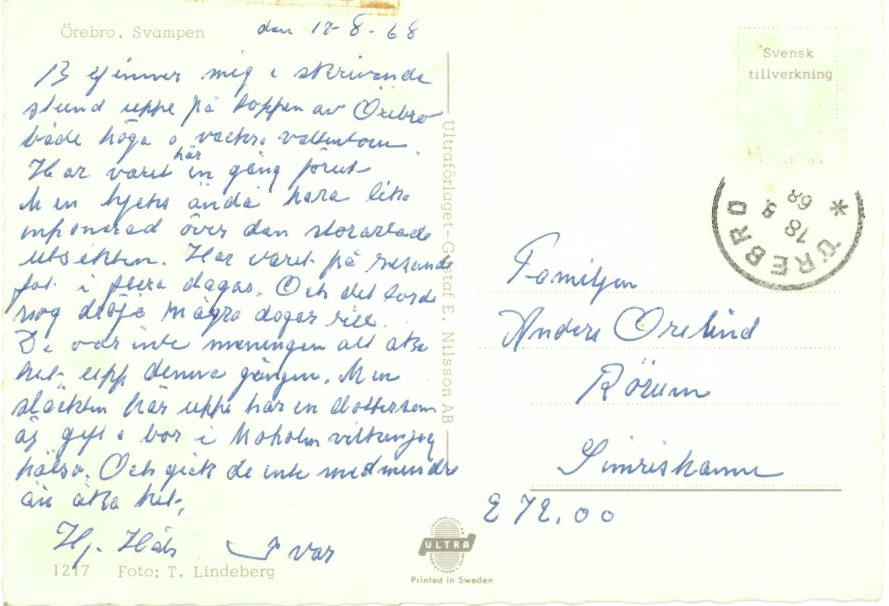 Örebro. Svampen
den 17-8-68
Befinner mig i skrivande
stund uppe på toppen av Örebro
både höga o vackra vattentorn
Har varit här en gång förut
Men lycks ändå vara lika
imponerad över den storartade
utsikten. Har varit på resande
fot i flera dagar. Och det torde
nog dröja några dagar till.
De var inte meningen att åka
hit upp denna gången. Men
släkten här uppe har en dotter som
är gift o bor i Moholm vilken jag
hälsa. Och gick de inte med mindre
än åka hit.
Hj. Häls Ivar
1217 Foto: T. Lindeberg
Ultraförlaget-Gustaf E. Nilsson AB
ULTRA
Printed in Sweden
Svensk
tillverkning
ÖREBRO
18 8
68
Familjen
Anders Orelind
Rörum
Simrishamn
E 72.00